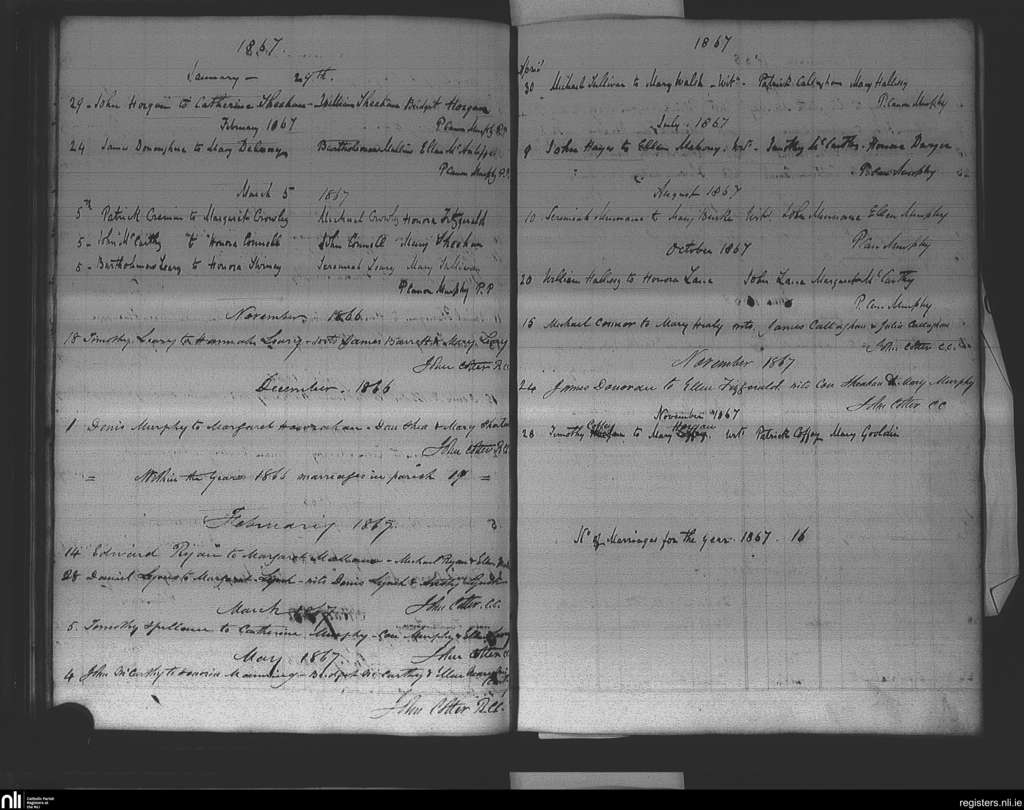 1867.
January - 29th.
29 - John Horgan to Catherine Sheehan - William Sheehan Bridget Horgan
P Canon Murphy P.P.
February 1867
24 James Donoughue to Mary
Bartholomew Ellen
P Canon Murphy P.P.
March 5 1867
5th Patrick Cremin to Margaret Crowley Michael Crowly Honora Fitzgerald
5 - John McCarthy to Honora Connell John Connell Mary Sheehan
5 - Bartholomew Leary to Honora Jeremiah Leary Mary Sullivan
P Canon Murphy P.P
November 1866
18 Timothy Leary to Hannah Leary - James Barrett & Mary Leary
John Cotter R.C.C.
December 1866
1 Denis Murphy to Margaret - Dan Shea & Mary
John Cotter R.C.C.
= Within the year 1866 marriages in parish 19 =
February 1867
14 Edward Ryan to Margaret - Michael Ryan & Ellen
28 Daniel Lyons to Margaret Lynch - wits Denis Lynch & Lynch
John Cotter C.C.
March 1867
5. Timothy Spillane to Catherine Murphy - Con Murphy & Ellen
John Cotter
May 1867
4 John McCarthy to Honoria Manning - Bridget McCarthy & Ellen
John Cotter R.C.C.
1867
April
30 Michael Sullivan to Mary Walsh - Wits. Patrick Callaghan Mary Hallisey
P. Canon Murphy
July. 1867
9 John Hayes to Ellen Mahony. Wits. Timothy McCarthy - Honora
P Canon Murphy
August 1867
10 Jeremiah Murnane to Mary Burke Wits John Murnane Ellen Murphy
P Can Murphy
October 1867
20 William Hallisey to Honora Lane John Lane Margaret McCarthy
P. Can Murphy
15 Michael Connor to Mary Healy wits, James Callaghan & Julia Callaghan
John Cotter C.C.
November 1867
24 James Donovan to Ellen Fitzgerald wits Con Sheehan & Mary Murphy
John Cotter CC
November 1867
Coffey Horgan
28 Timothy Horgan to Mary Coffey. Wits Patrick Coffey Mary Gooldin
No of Marriages for the year. 1867. 16
nli
Catholic Parish
Registers at
the NLI
registers.nli.ie